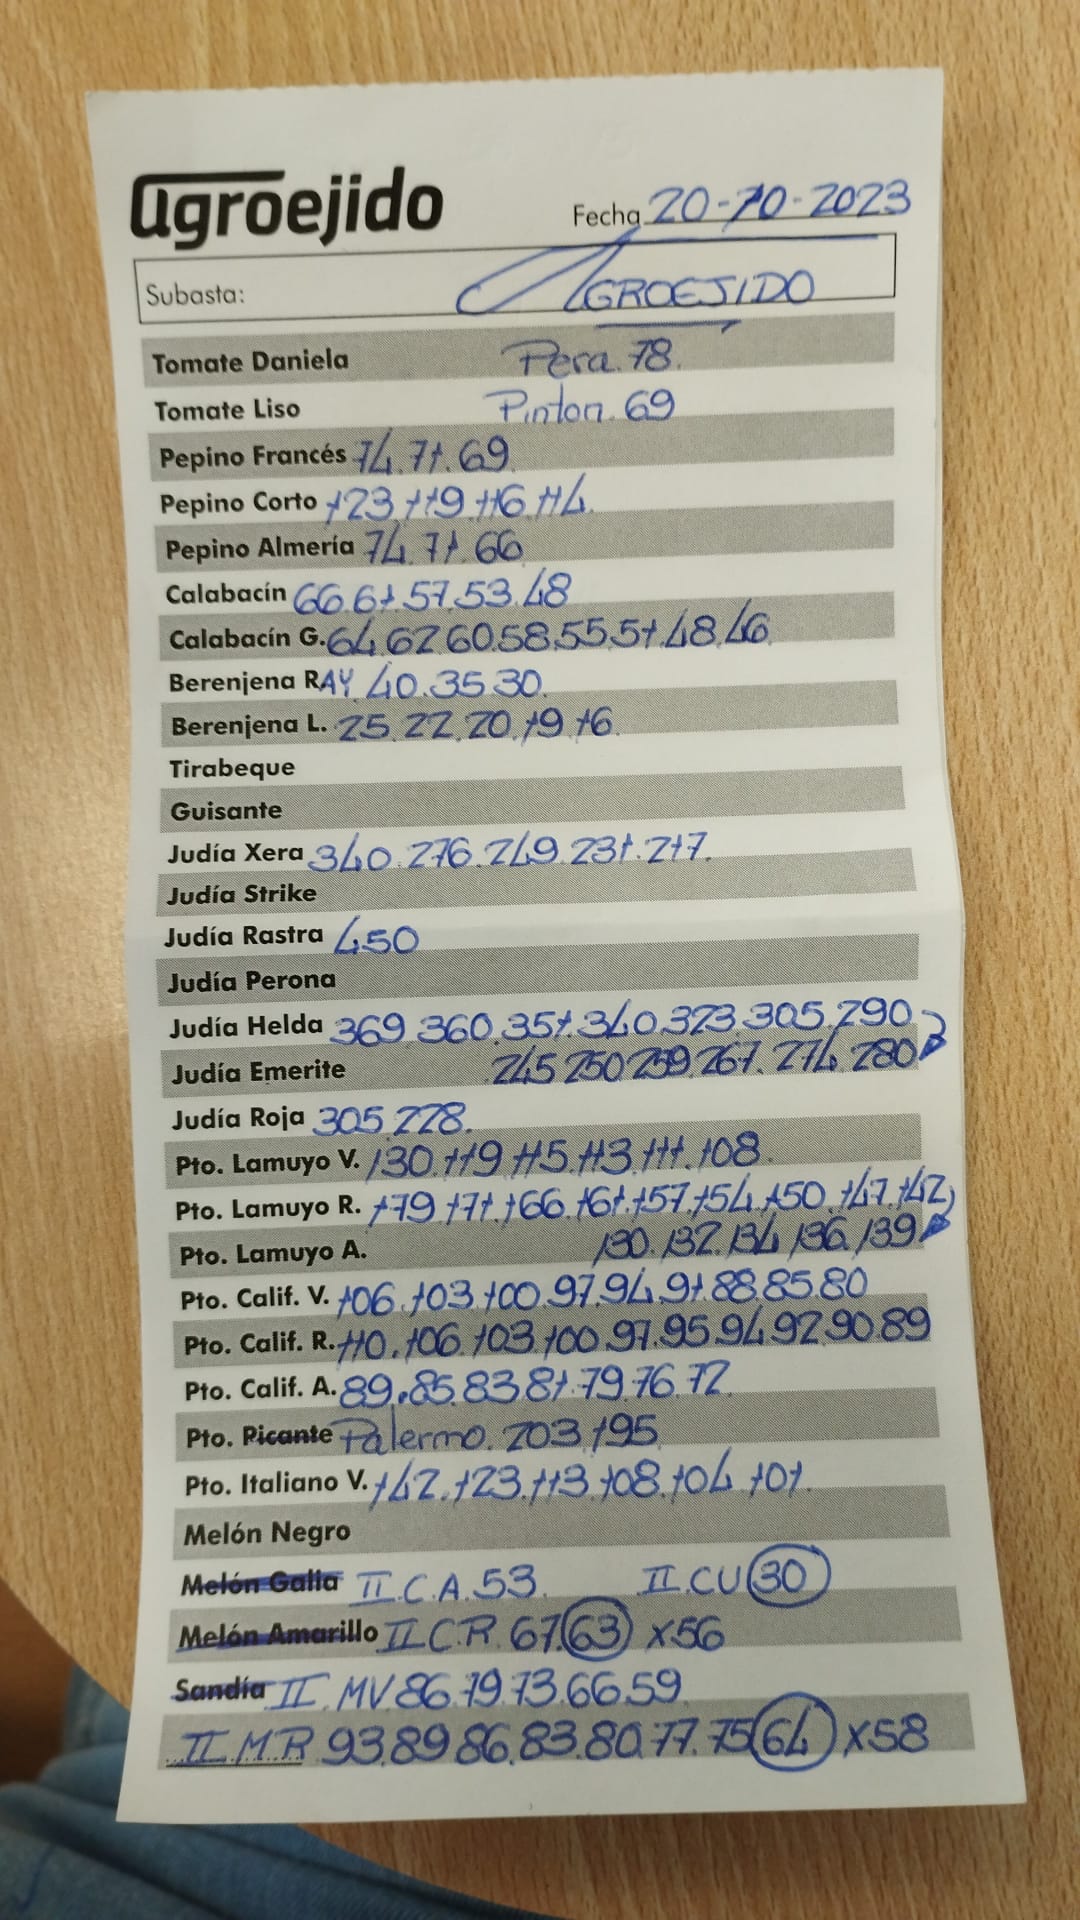 agroejido
Fecha 20-10-2023
Subasta: AGROEJIDO
Tomate Daniela Pera. 78.
Tomate Liso Pinton. 69
Pepino Francés 74. 71. 69
Pepino Corto 123 119 116 114.
Pepino Almería 74. 71. 66
Calabacín 66. 61. 57. 53. 48
Calabacín G. 64. 62 60. 58. 55. 51. 48. 46
Berenjena RAY 40. 35 30.
Berenjena L. 25. 22. 20. 19 16
Tirabeque
Guisante
Judía Xera 340. 276. 249. 231. 217.
Judía Strike
Judía Rastra 450
Judía Perona
Judía Helda 369 360. 351. 340. 323. 305. 290
Judía Emerite 245 250 259. 267. 274. 280
Judía Roja 305. 228.
Pto. Lamuyo V. 130. 119 115. 113. 111. 108.
Pto. Lamuyo R. 179 171. 166. 161. 157. 154. 150. 147. 142
Pto. Lamuyo A. 130. 132. 134 136. 139
Pto. Calif. V. 106. 103. 100. 97. 94. 91. 88. 85. 80
Pto. Calif. R. 110. 106 103. 100. 97. 95. 94. 92. 90. 89
Pto. Calif. A. 89. 85. 83 81. 79. 76. 72.
Pto. Picante Palermo. 203 195
Pto. Italiano V. 142. 123. 113. 108. 104. 101.
Melón Negro
Melón Galia II C.A. 53. II. CU 30
Melón Amarillo II C.R. 67. 63 x56
Sandía II. MV 86. 79. 73. 66. 59
II M R 93. 89 86. 83. 80. 77. 75 64 x58